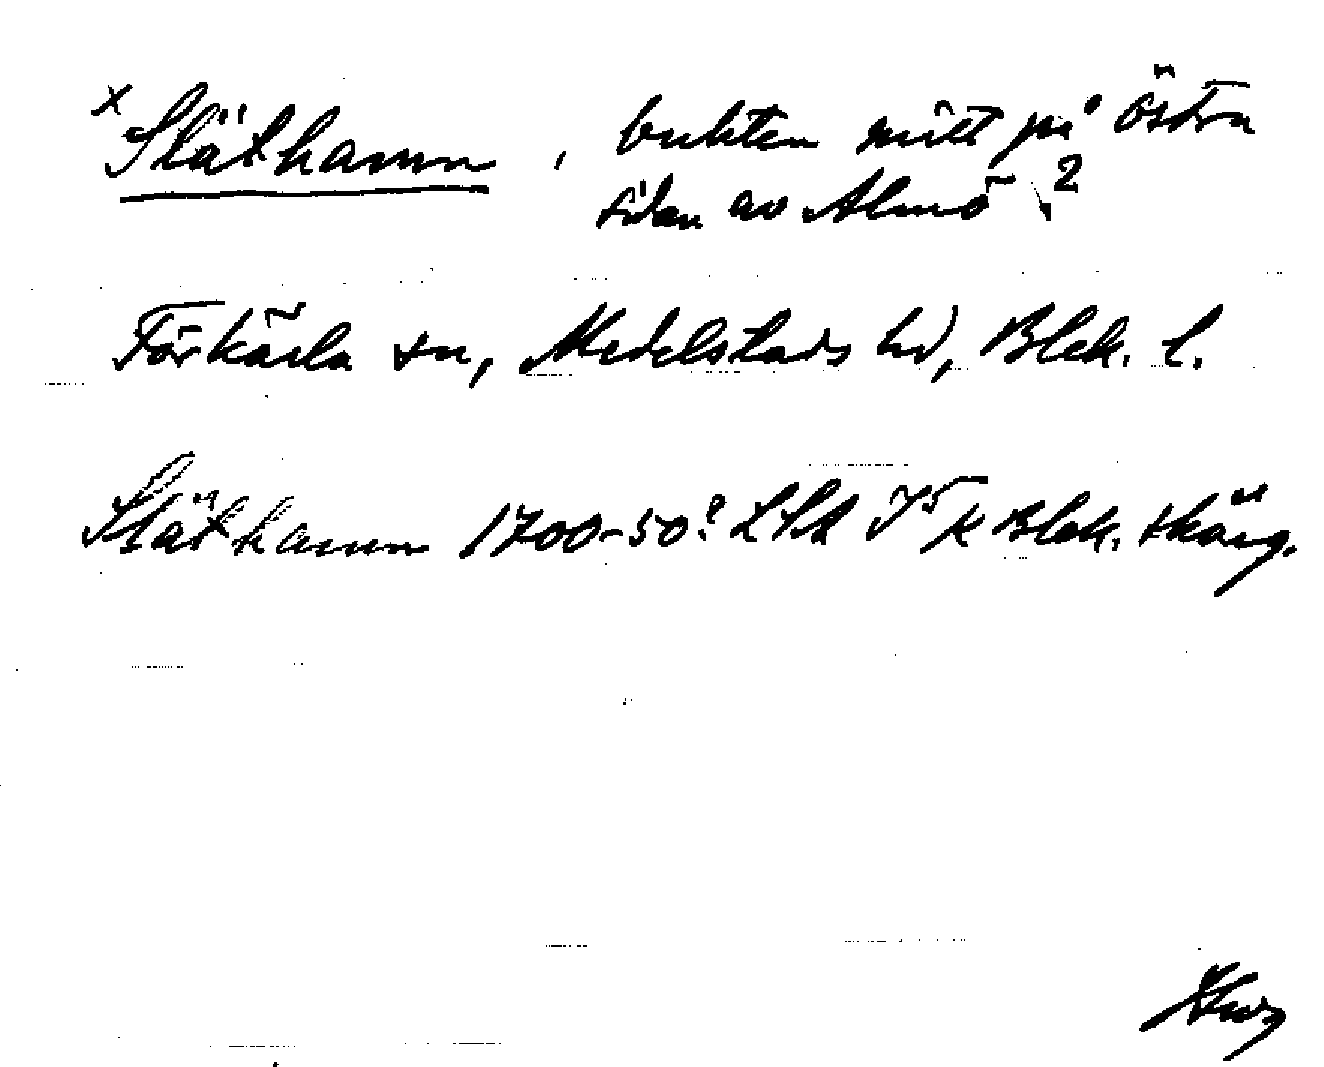 x Släthamn, bukten mitt på östra
sidan av Almö 2
Förkärla sn, Medelstads hd, Blek. l.
Släthamn 1700-50? LSA K Blek. skärg.